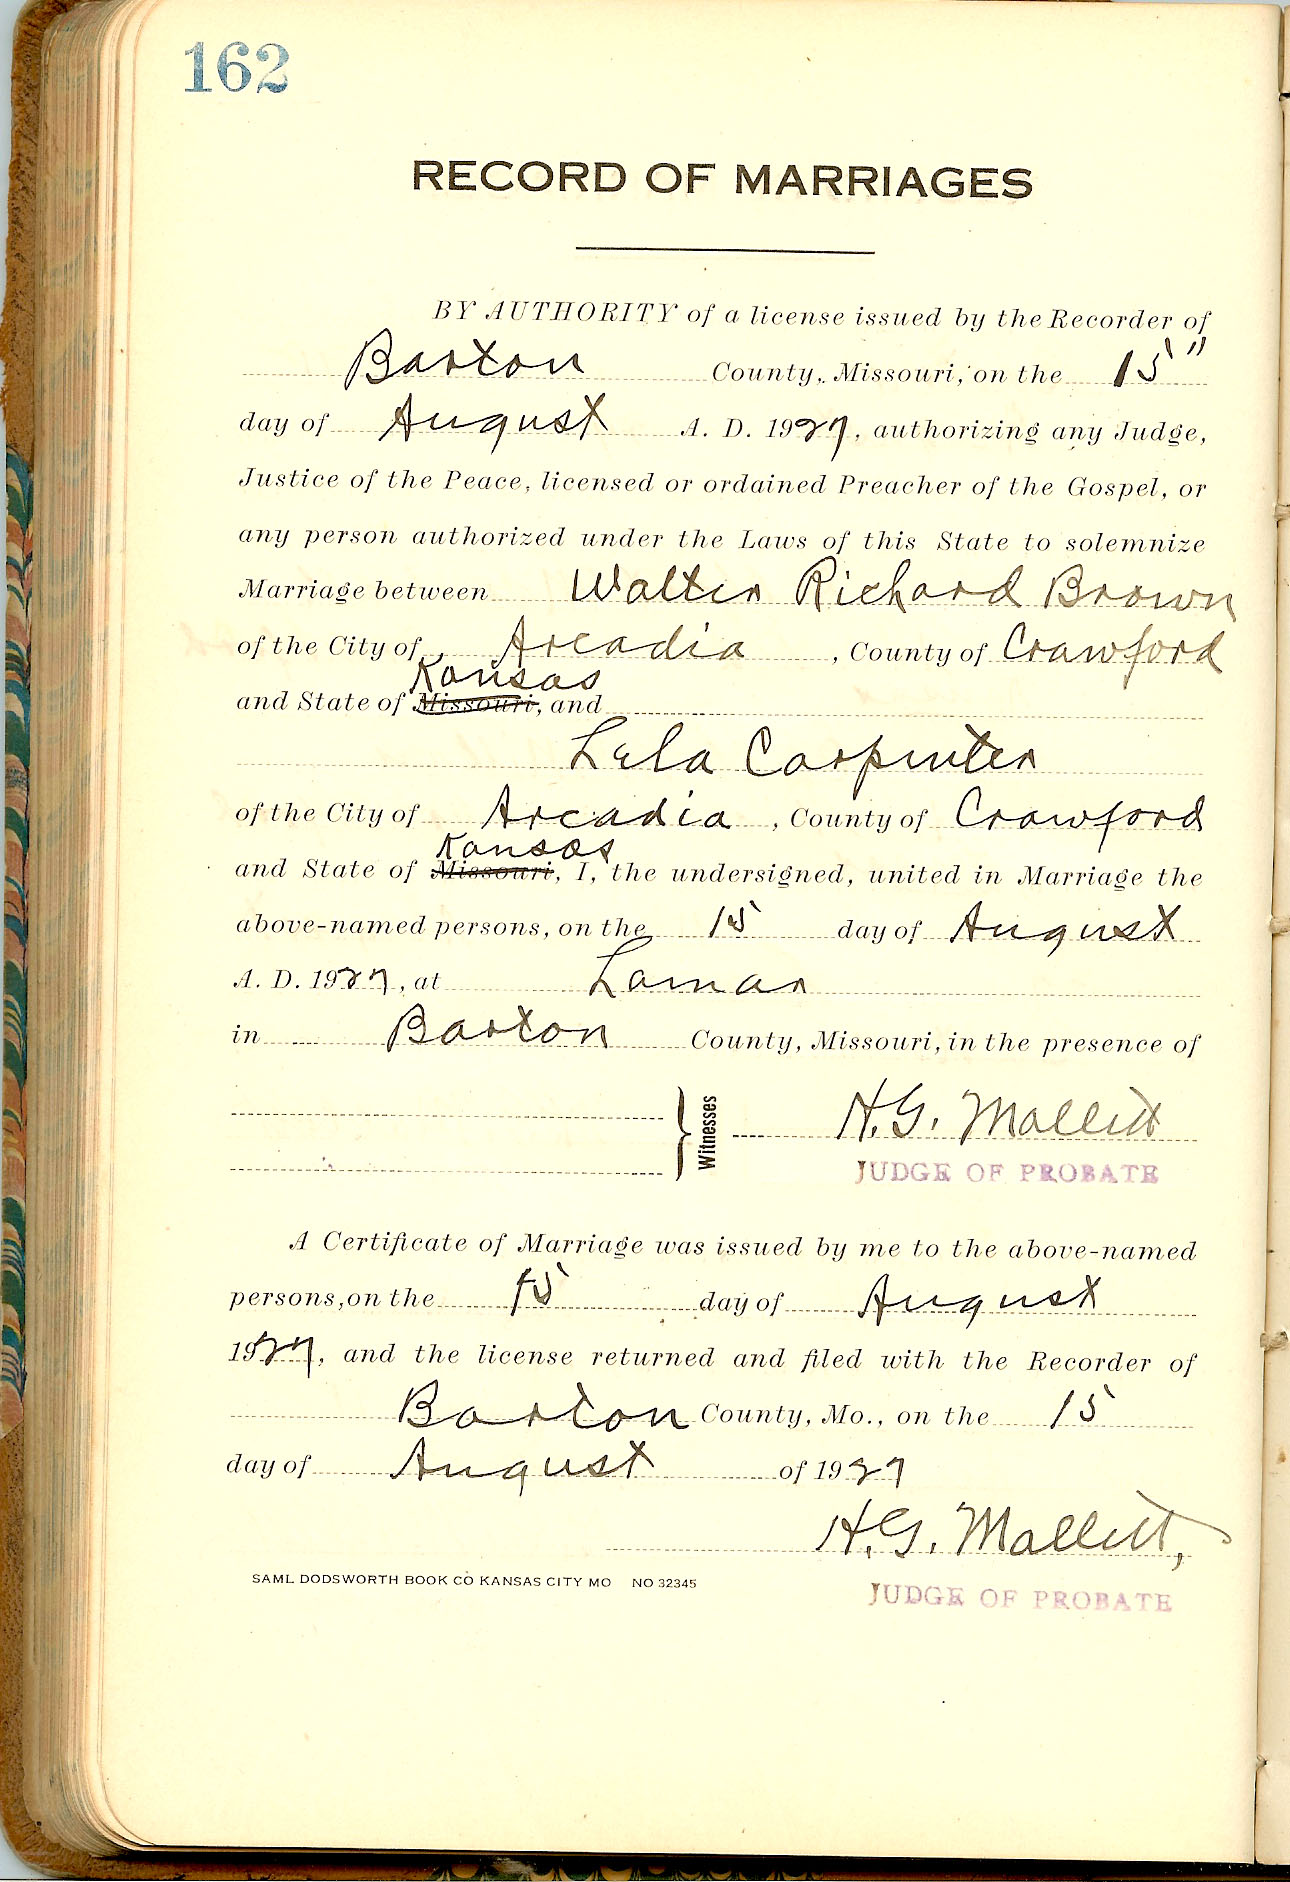 162
RECORD OF MARRIAGES
BY AUTHORITY of a license issued by the Recorder of
Barton County, Missouri, on the 15"
day of August A. D. 1927, authorizing any Judge,
Justice of the Peace, licensed or ordained Preacher of the Gospel, or
any person authorized under the Laws of this State to solemnize
Marriage between Walter Richard Brown
of the City of Arcadia, County of Crawford
Kansas
and State of Missouri, and
Lela Carpenter
of the City of Arcadia, County of Crawford
Kansas
and State of Missouri, I, the undersigned, united in Marriage the
above-named persons, on the 15 day of August
A. D. 1927, at Lamar
in Barton County, Missouri, in the presence of
Witnesses H.G. Mallett
JUDGE OF PROBATE
A Certificate of Marriage was issued by me to the above-named
persons, on the 15 day of August
1927, and the license returned and filed with the Recorder of
Barton County, Mo., on the 15
day of August of 1927
H.G. Mallett,
SAML DODSWORTH BOOK CO KANSAS CITY MO NO 32345
JUDGE OF PROBATE